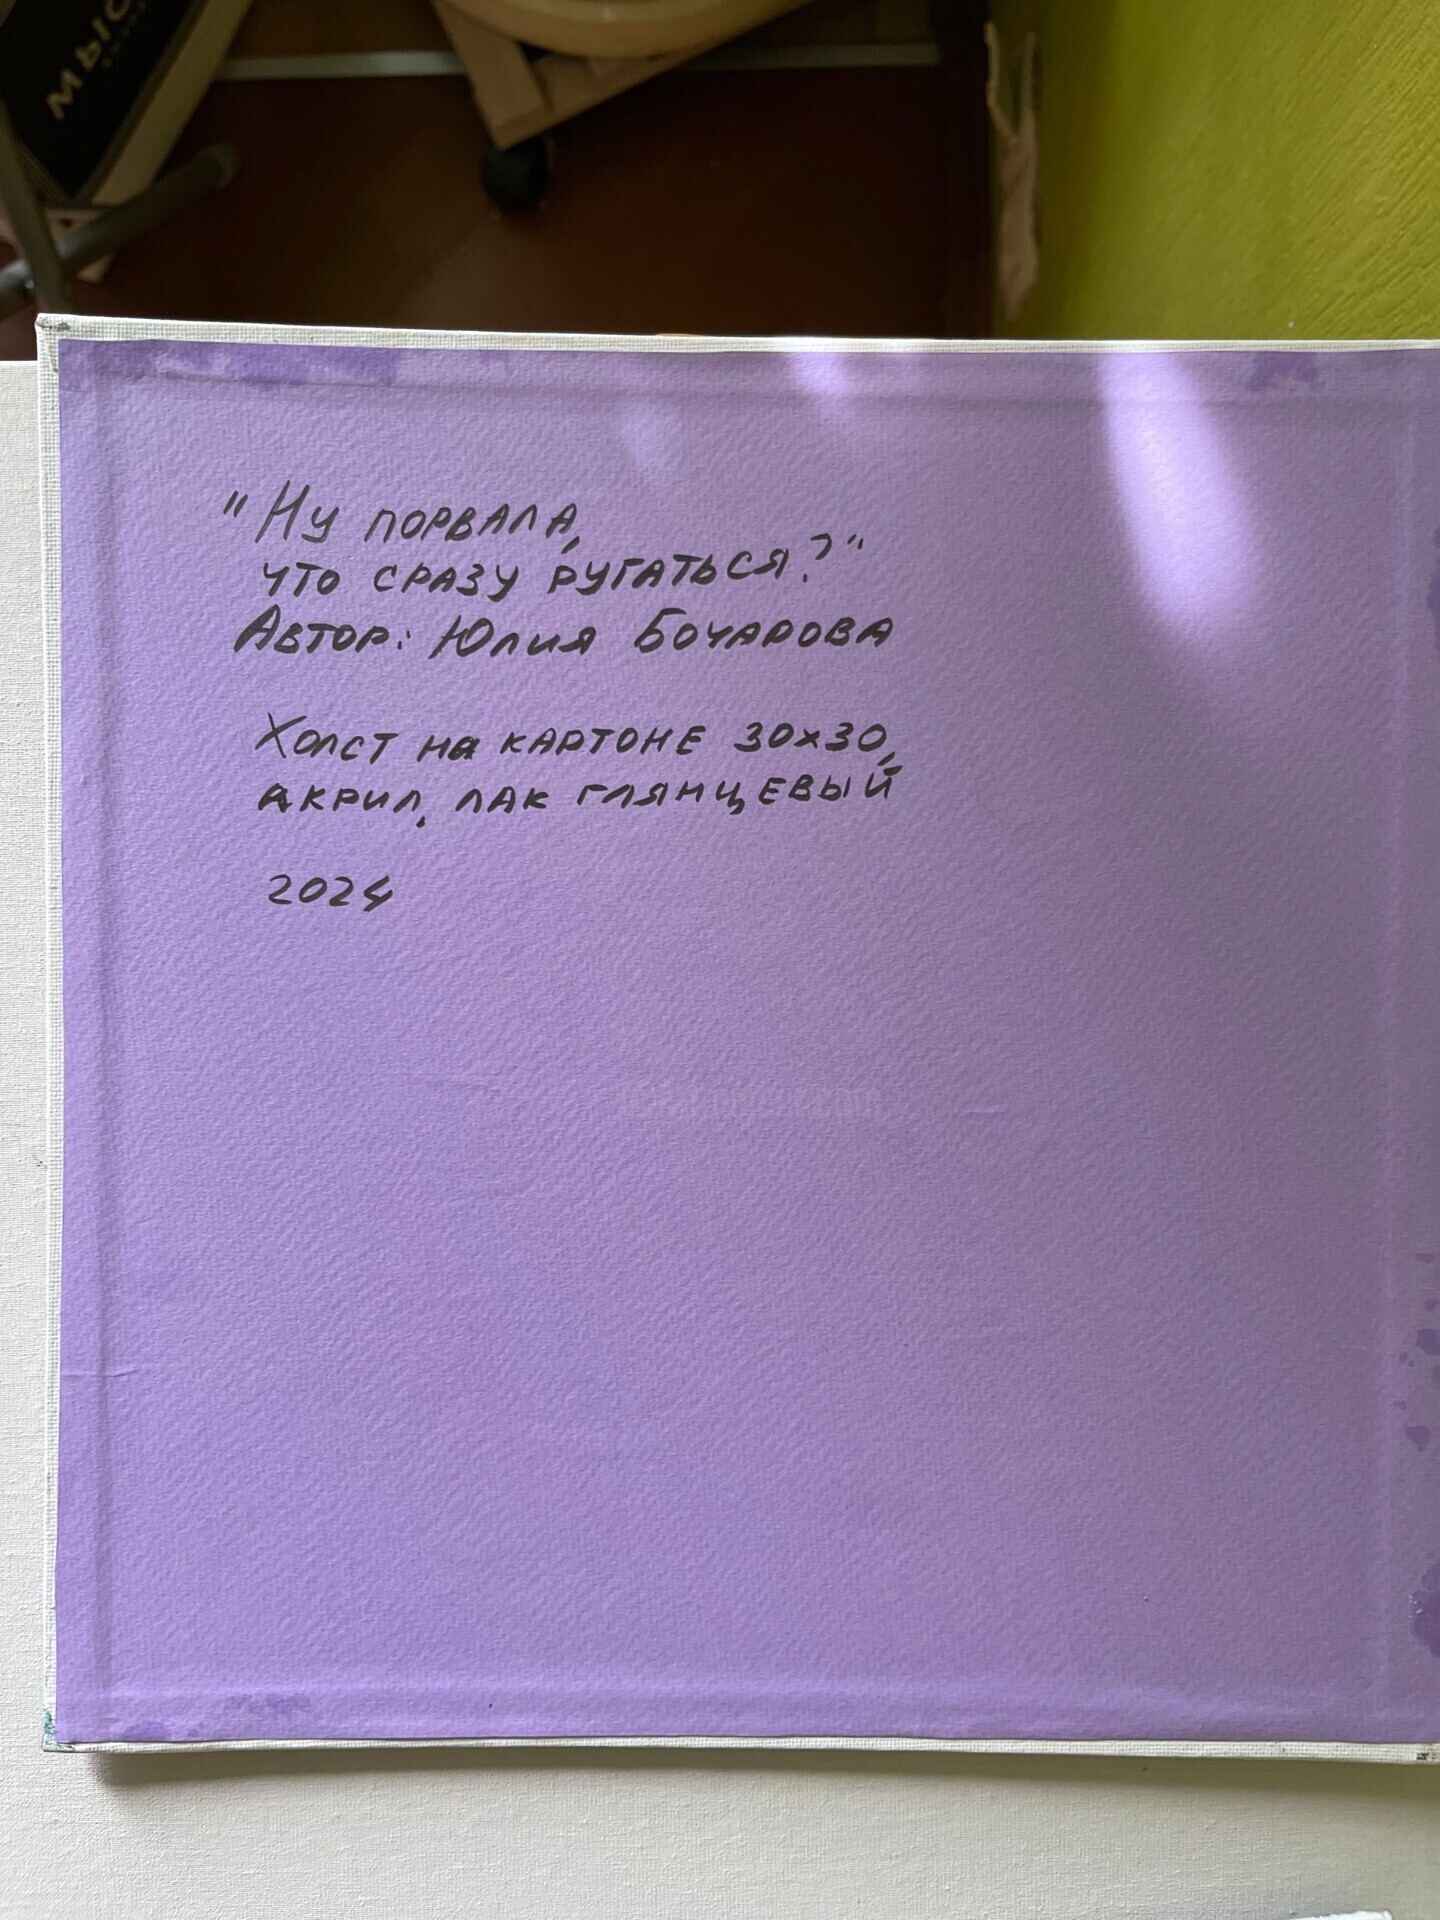 МЫС
"Ну порвала,
что сразу ругаться?"
Автор: Юлия Бочарова
Холст на картоне 30х30,
акрил, лак глянцевый
2024